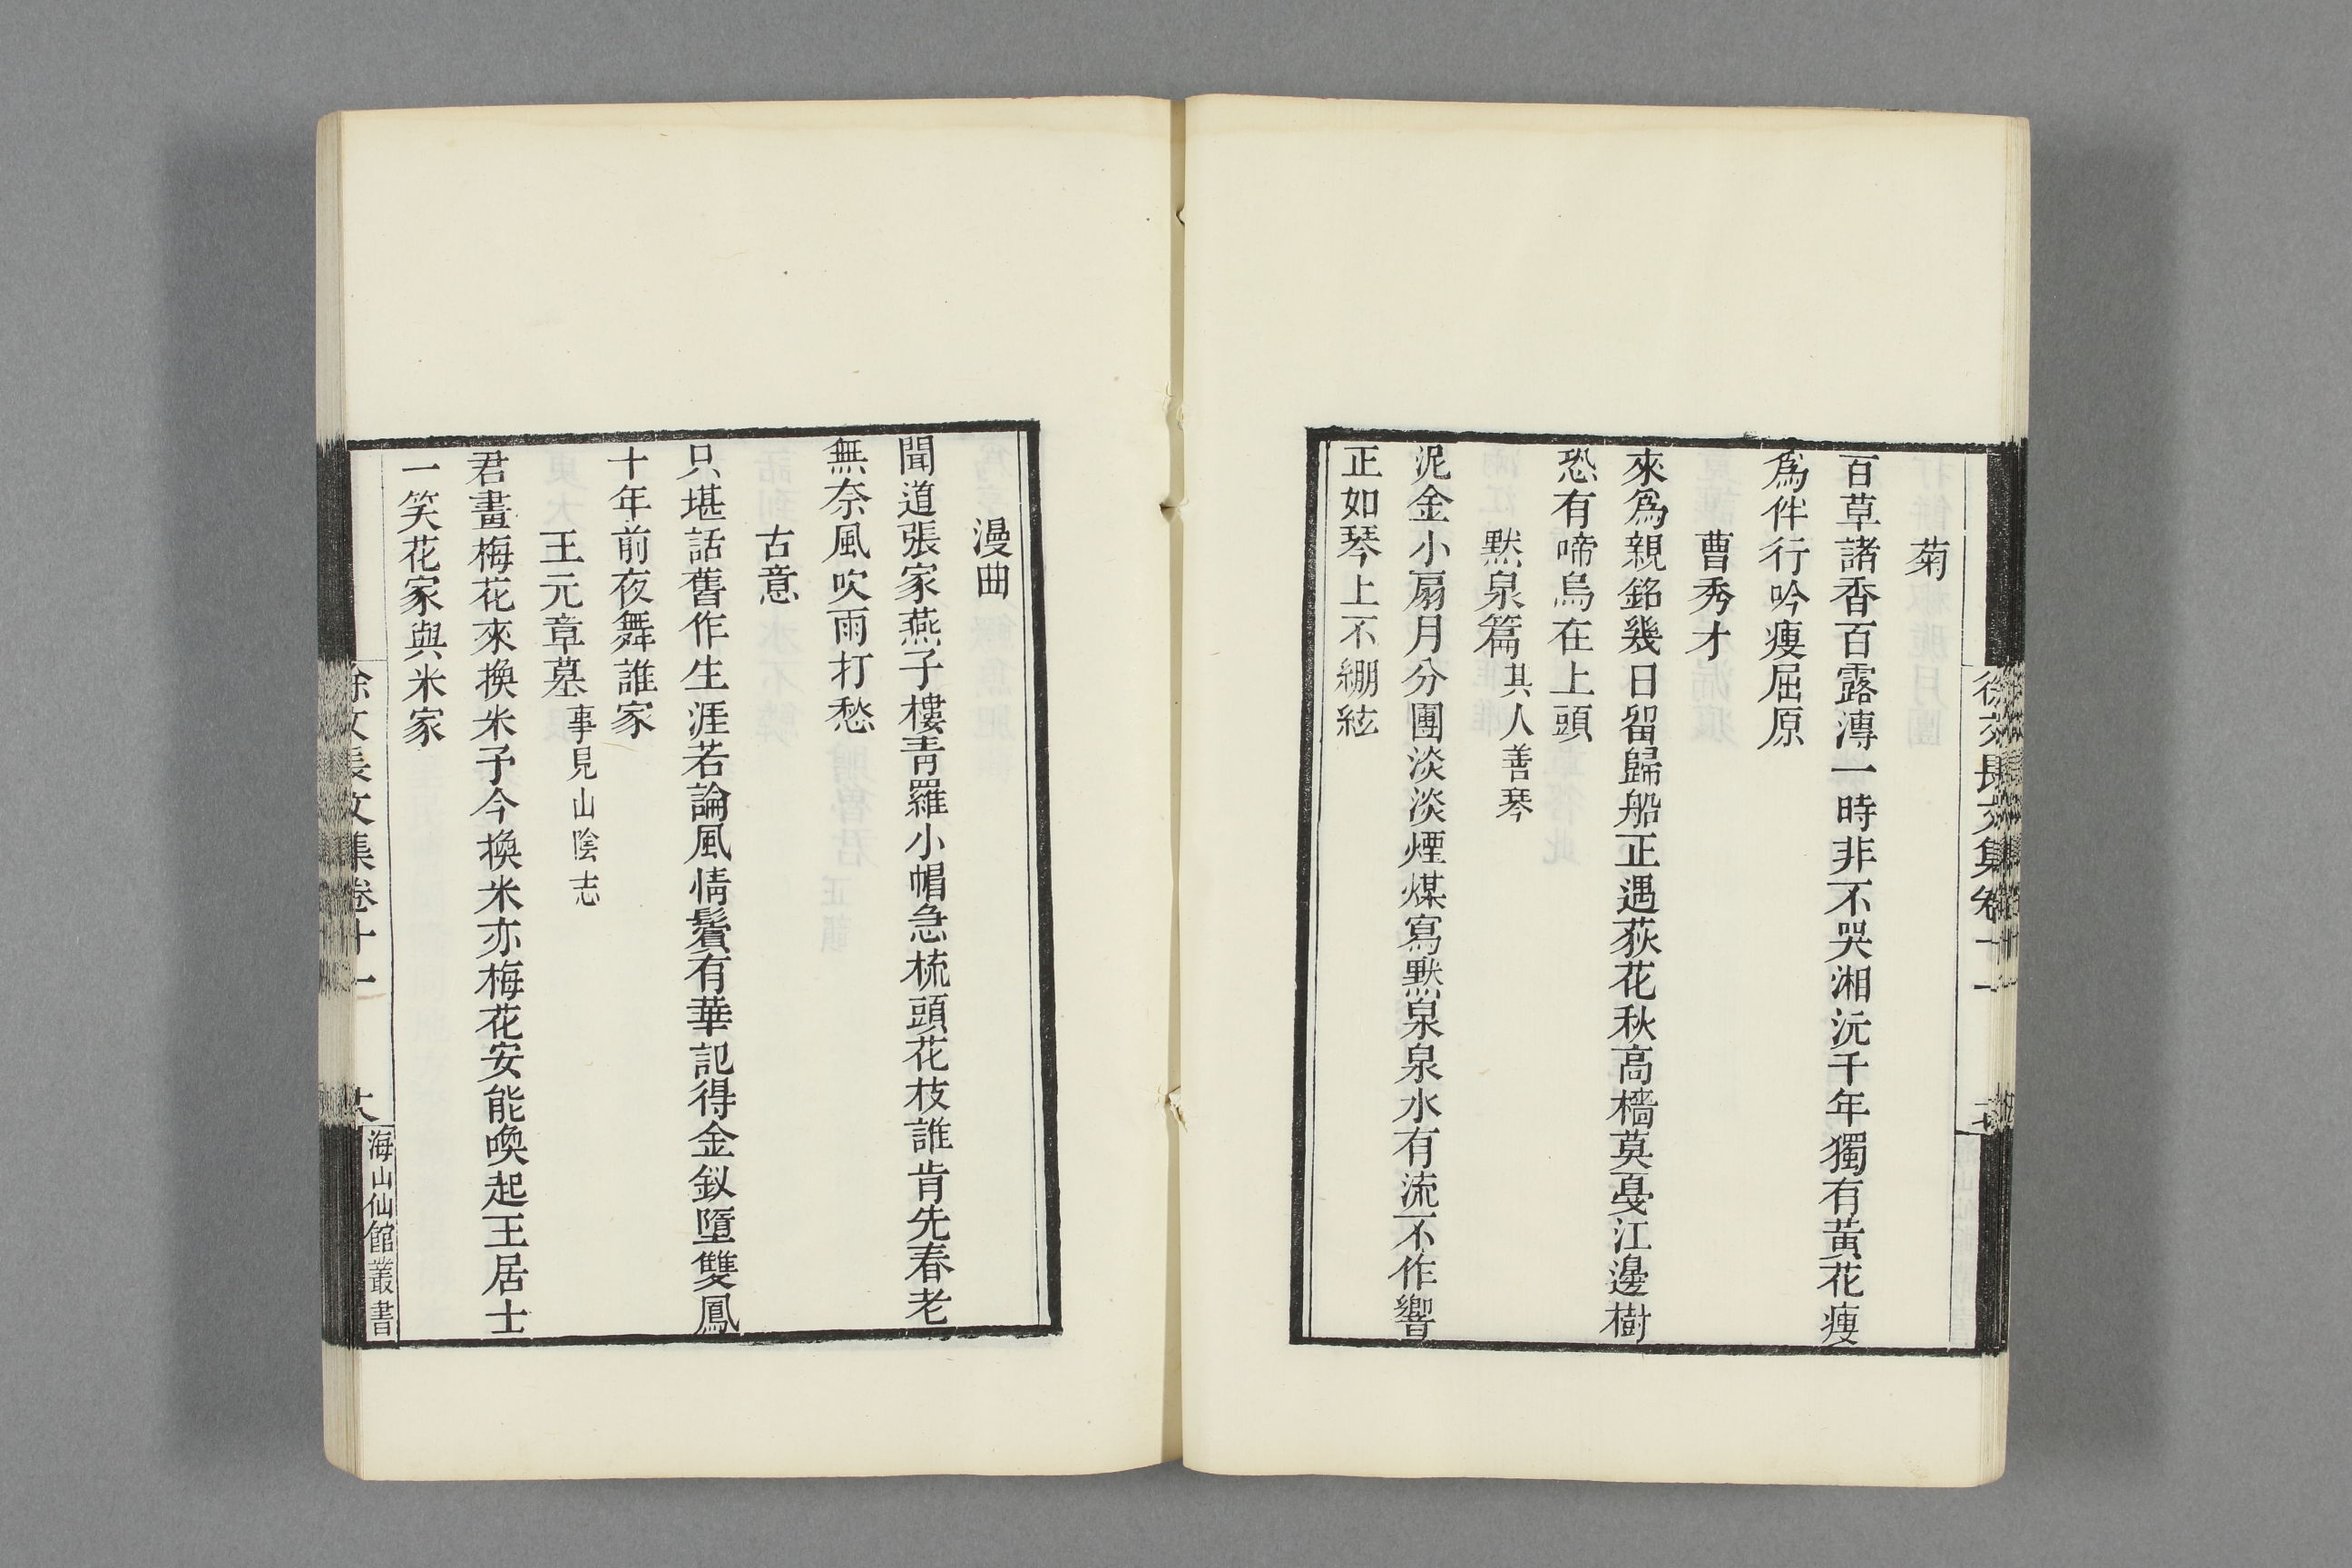 菊
百草諸香百露漙一時非不哭湘沅千年獨有黃花瘦
爲伴行吟瘦屈原
曹秀才
來爲親銘幾日留歸船正遇荻花秋高檣莫戞江邊樹
恐有啼烏在上頭
默泉篇其人善琴
泥金小扇月分團淡淡煙煤寫默泉泉水有流不作響
正如琴上不綳絃
漫曲
聞道張家燕子樓青羅小帽急梳頭花枝誰肯先春老
無奈風吹雨打愁
古意
只堪話舊作生涯若論風情鬢有華記得金釵墮雙鳳
十年前夜舞誰家
王元章墓事見山陰志
君畫梅花來換米予今換米亦梅花安能喚起王居士
一笑花家與米家
徐文長文集卷十一
海山仙館叢書